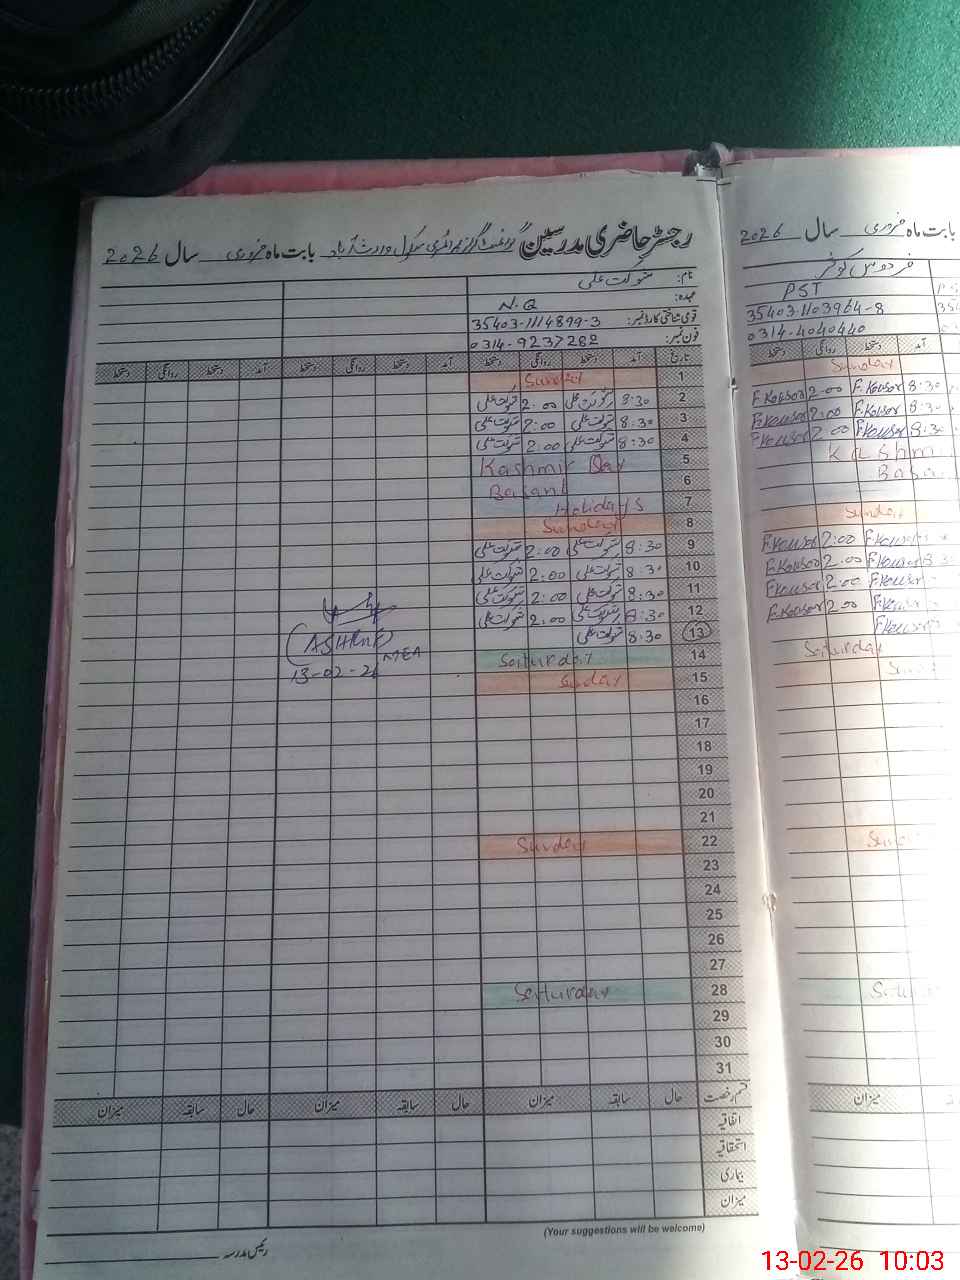 رجسٹر حاضری مدرسین گورنمنٹ گرلز پرائمری سکول وارث آباد بابت ماہ فروری سال 2026
نام: شوکت علی
عہدہ: N.Q
قومی شناختی کارڈ نمبر: 35403-1114899-3
فون نمبر: 0314-9237282
تاریخ آمد دستخط روانگی دستخط آمد دستخط روانگی دستخط آمد دستخط روانگی دستخط
1 Sunday
2 8:30 شوکت علی 2:00 شوکت علی
3 8:30 شوکت علی 2:00 شوکت علی
4 8:30 شوکت علی 2:00 شوکت علی
5 Kashmir Day
6 Basant
7 Holidays
8 Sunday
9 8:30 شوکت علی 2:00 شوکت علی
10 8:30 شوکت علی 2:00 شوکت علی
11 8:30 شوکت علی 2:00 شوکت علی
12 8:30 شوکت علی 2:00 شوکت علی
13 8:30 شوکت علی
14 Saturday
15 Sunday
16
17
18
19
20
21
22 Sunday
23
24
25
26
27
28 Saturday
29
30
31
MEA
13-02-26
قسم رخصت حال سابقہ میزان حال سابقہ میزان حال سابقہ میزان
اتفاقیہ
استحقاقیہ
بیماری
میزان
(Your suggestions will be welcome)
رئیس مدرسہ
بابت ماہ فروری سال 2026
فردوس کوثر
PST
35403-1103964-8
0314-4040440
آمد دستخط روانگی دستخط
Sunday
8:30 F.Kousar 2:00 F.Kousar
8:30 F.Kousar 2:00 F.Kousar
8:30 F.Kousar 2:00 F.Kousar
Sunday
F.Kousar 2:00 F.Kousar
F.Kousar 2:00 F.Kousar
F.Kousar 2:00 F.Kousar
F.Kousar 2:00 F.Kousar
F.Kousar
Saturday
میزان
13-02-26 10:03